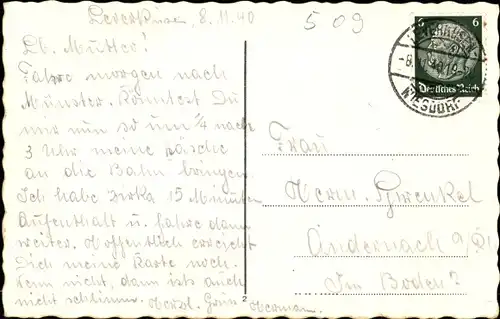 Leverkusen, 8.11.40
509
Lb. Mutter!
Fahre morgen nach
Münster. Könntest Du
mir nun so um 1/4 nach
3 Uhr meine
an die Bahn bringen.
Ich habe zirka 15 Minuten
Aufenthalt u. fahre dann
weiter. Hoffentlich erreicht
Dich meine Karte noch.
Wenn nicht, dann ists auch
nicht schlimm. Herzl. Gruss
Hermann.
6 6
Deutsches Reich
LEVERKUSEN
WIESDORF
Frau
Herm.
Andernach a/Rh
Im Boden
2